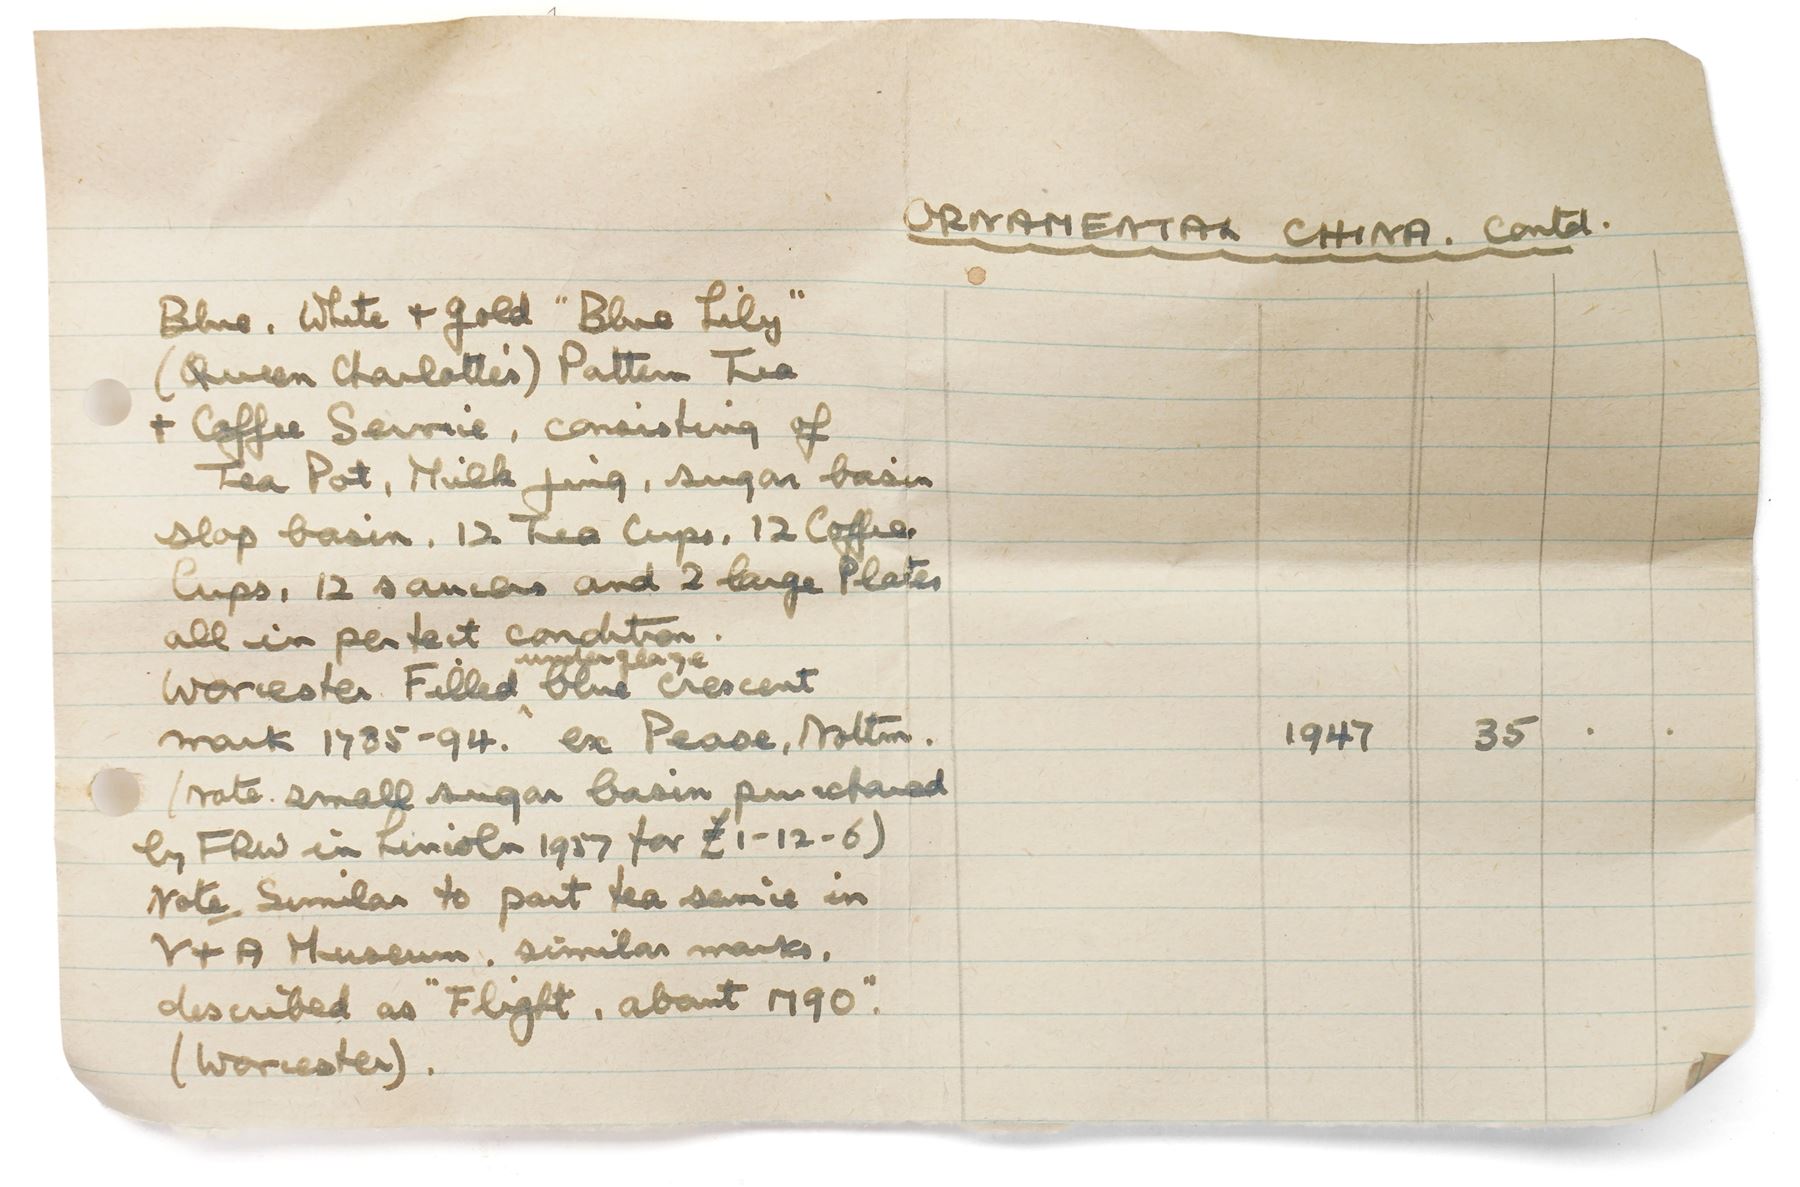 ORNAMENTAL CHINA. Contd.
Blue, White + Gold "Blue Lily"
(Queen Charlotte's) Pattern Tea
+ Coffee Service, consisting of
Tea Pot, Milk jug, sugar basin
slop basin, 12 Tea Cups, 12 Coffee
Cups, 12 saucers and 2 large Plates
all in perfect condition.
Worcester Filled underglaze blue crescent
mark 1785-94. ex Pease, Nottm. 1947 35 . .
(note small sugar basin purchased
by FRW in Lincoln 1957 for £1-12-6)
Note Similar to part tea service in
V + A Museum, similar marks,
described as "Flight, about 1790".
(Worcester).